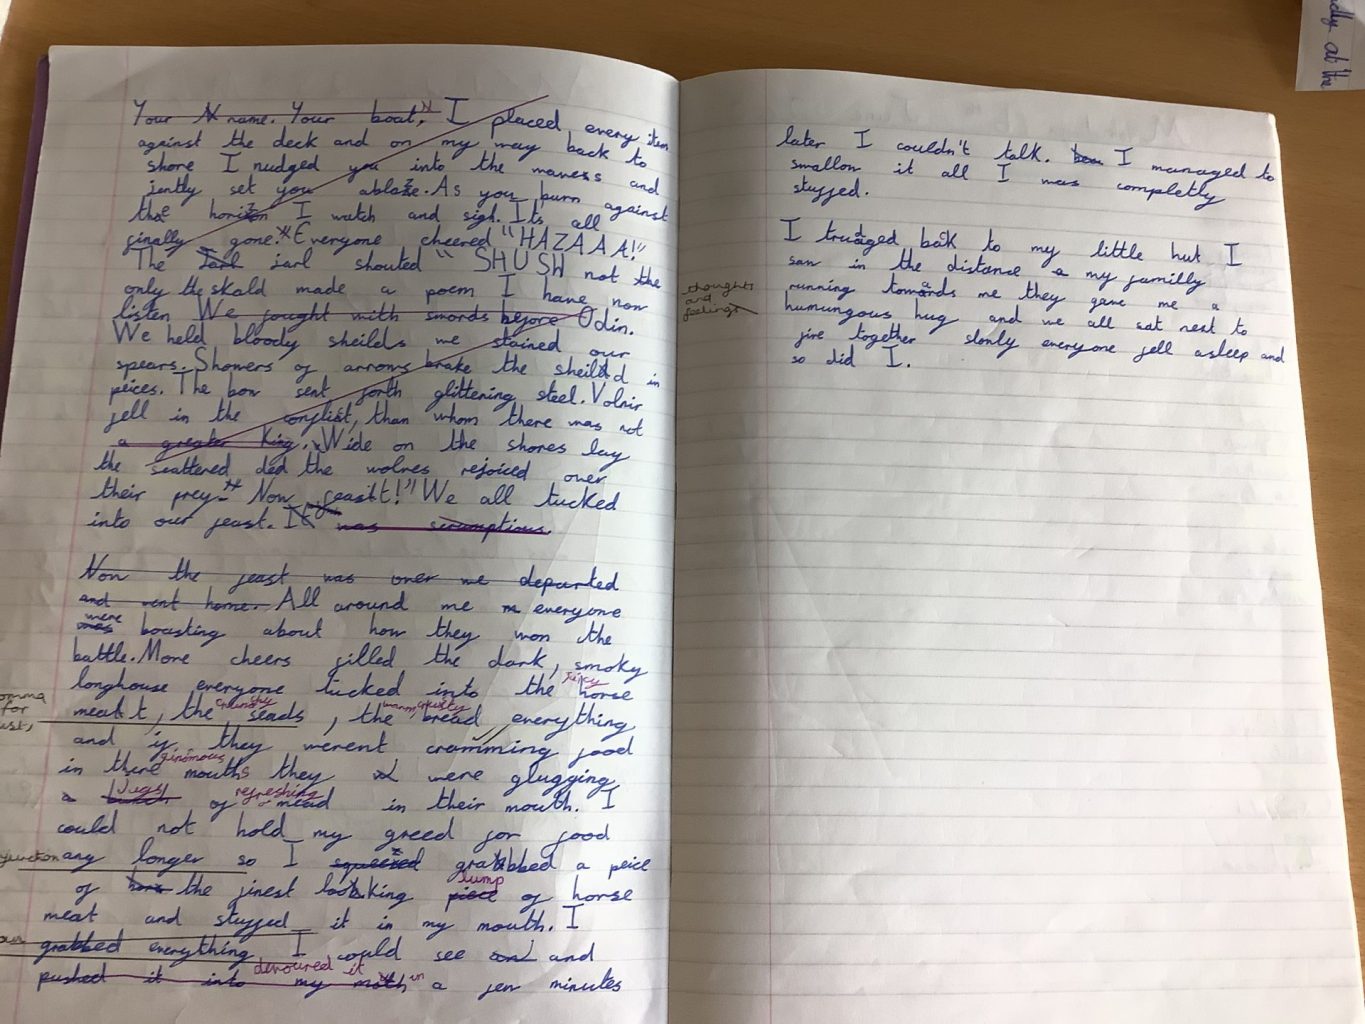 Your name. Your boat, I placed every item
against the deck and on my way back to
shore I nudged you into the waves and
jently set you ablaze. As you burn against
the horizon I watch and sigh. Its all
finally gone. Everyone cheered "HAZAAA!"
The Jarl jarl shouted "SHUSH not the
only the skald made a poem I have now
listen We fought with swords before Odin.
We held bloody sheilds we stained our
spears. Showers of arrows brake the sheild in
peices. The bow sent forth glittering steel. Volnir
fell in the conflict, than whom there was not
a greater King. Wide on the shores lay
the scattered ded the wolves rejoiced over
their prey. Now feast!" We all tucked
into our feast. It was scrumptious.
Now the feast was over we departed
and went home. All around me everyone
were
was boasting about how they won the
battle. More cheers filled the dark, smoky
juicy
longhouse everyone tucked into the horse
crunchy warm, crusty
meat, the seads, the bread everything
and if they werent cramming food
ginomous
in there mouths they were glugging
Jugs refreshing
a of mead in their mouth. I
could not hold my greed for food
any longer so I squeezed grabbed a peice
lump
of the finest looking piece of horse
meat and stuffed it in my mouth. I
grabbed everything I could see and
devoured it in
pushed it into my moth a few minutes
later I couldn't talk. I managed to
swallow it all I was completly
stuffed.
I trudged back to my little hut I
thoughts
and
feelings
saw in the distance my familly
running towards me they gave me a
humungous hug and we all sat nest to
fire together slowly everyone fell asleep and
so did I.
at the